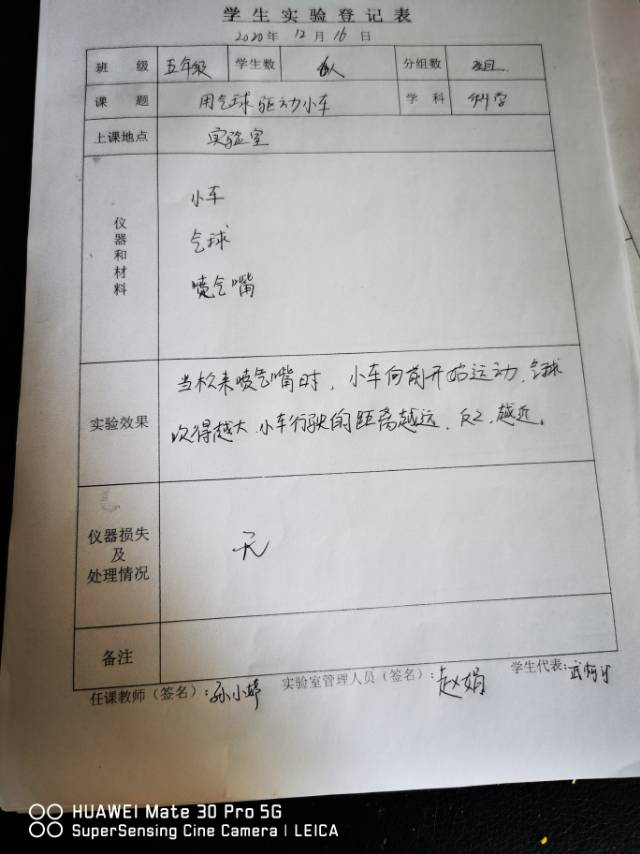 学生实验登记表
2020年12月16日
班级 五年级 学生数 人 分组数 组
课题 用气球驱动小车 学科 科学
上课地点 实验室
仪器和材料
小车
气球
喷气嘴
实验效果
当松来喷气嘴时，小车向前开始运动，气球
吹得越大，小车行驶的距离越远，反之，越近。
仪器损失及处理情况 无
备注
任课教师（签名）：孙小婷 实验室管理人员（签名）：赵娟 学生代表：武
HUAWEI Mate 30 Pro 5G
SuperSensing Cine Camera | LEICA